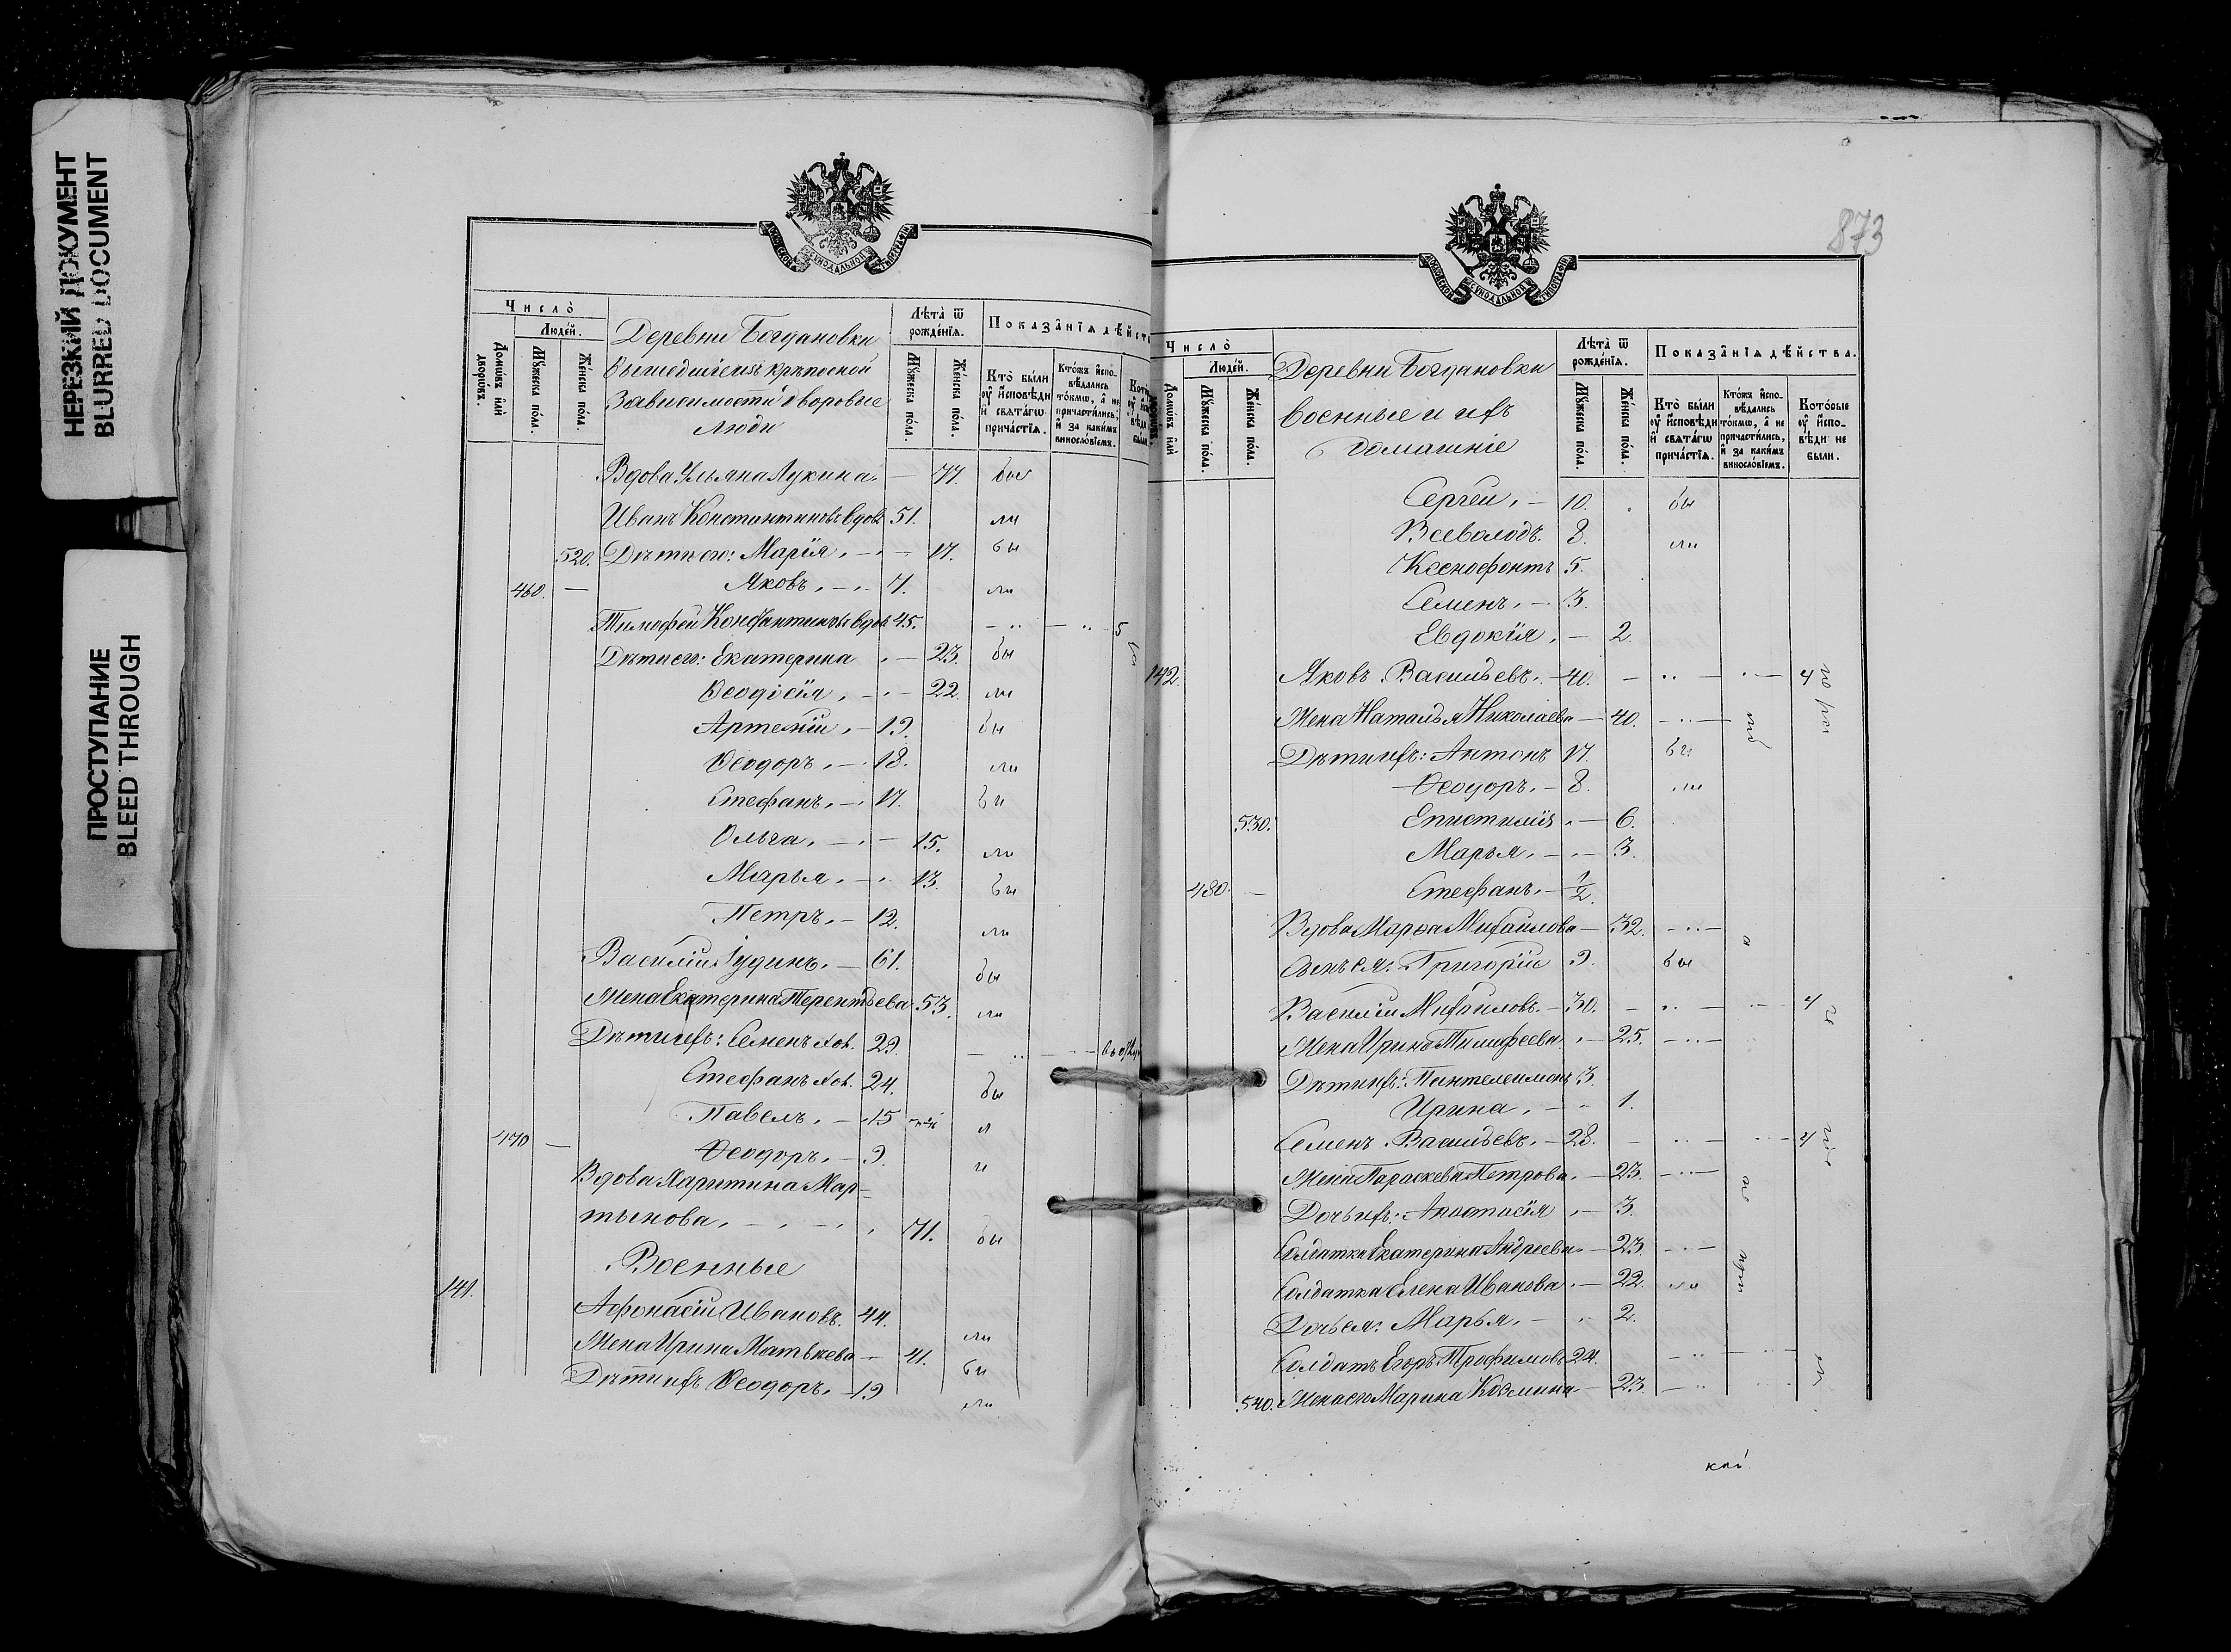 НЕРЕЗКИЙ ДОКУМЕНТ
BLURRED DOCUMENT
ПРОСТУПАНИЕ
BLEED THROUGH
МОСКОВСКОЙ СѴНОДАЛЬНОЙ ТИПОГРАФІИ
Число
Людей.
Домовъ или дворовъ.
Мужеска пола.
Женска пола.
Деревни Богдановки
Вышедшіе изъ крѣпостной
Зависимости дворовые
Люди
Лѣта ѿ рожденія.
Мужеска пола.
Женска пола.
Показанія дѣйст
Кто были у исповѣди и святагѡ причастія.
Ктожъ исповѣдались токмѡ, а не причастились, и за какимъ винословіемъ.
Вдова Ульяна Лукина 77. бы
Иванъ Константиновъ вдовъ 51. ли
520. Дѣти его: Марія 17. бы
460. Яковъ 7. ли
Тимофей Константиновъ вдов 45.
Дѣти его: Екатерина 23. бы
Ѳеодосія 22. ли
Артемій 19. бы
Ѳеодоръ 18. ли
Стефанъ 17. бы
Ольга 15. ли
Марья 13. бы
Петръ 12. ли
Василій Іудинъ 61. бы
Жена Екатерина Терентьева 53. ли
Дѣти ихъ: Семенъ хол. 29.
Стефанъ хол. 24. бы
Павелъ 15 л
470 Ѳеодоръ 9. и
Вдова Харитина Мар-
тынова 71. бы
Военные
141. Афонасій Ивановъ 44. ли
Жена Ирина Матвѣева 41. бы
Дѣти ихъ Ѳеодоръ 19 ли
873
МОСКОВСКОЙ СѴНОДАЛЬНОЙ ТИПОГРАФІИ
Число
Людей.
Домовъ или
Мужеска пола.
Женска пола.
Деревни Богдановки
военные и ихъ
домашніе
Лѣта ѿ рожденія.
Мужеска пола.
Женска пола.
Показанія дѣйства.
Кто были у исповѣди и святагѡ причастія.
Ктожъ исповѣдались токмѡ, а не причастились, и за какимъ винословіемъ.
Которые у исповѣди не были.
Сергѣй 10. бы
Всеволодъ 8. ли
Ксенофонтъ 5.
Семенъ 3.
Евдокія 2.
142. Яковъ Васильевъ 40.
Жена Наталья Николаева 40.
Дѣти ихъ: Антонъ 17. бы
Ѳеодоръ 8. ли
530. Епистимія 6.
Марья 3.
480. Стефанъ 1/2.
Вдова Марѳа Михайлова 32.
Сынъ ея: Григорій 9. бы
Василій Михайловъ 30.
Жена Ирина Тимофеева 25.
Дѣти ихъ: Пантелеимонъ 3.
Ирина 1.
Семенъ Васильевъ 28.
Жена Параскева Петрова 23.
Дочь ихъ: Анастасія 3.
Солдатка Екатерина Андреева 23.
Солдатка Елена Иванова 22. ли
Дочь ея: Марья 2.
Солдатъ Егоръ Трофимовъ 24.
540. Жена его Марина Козмина 23.